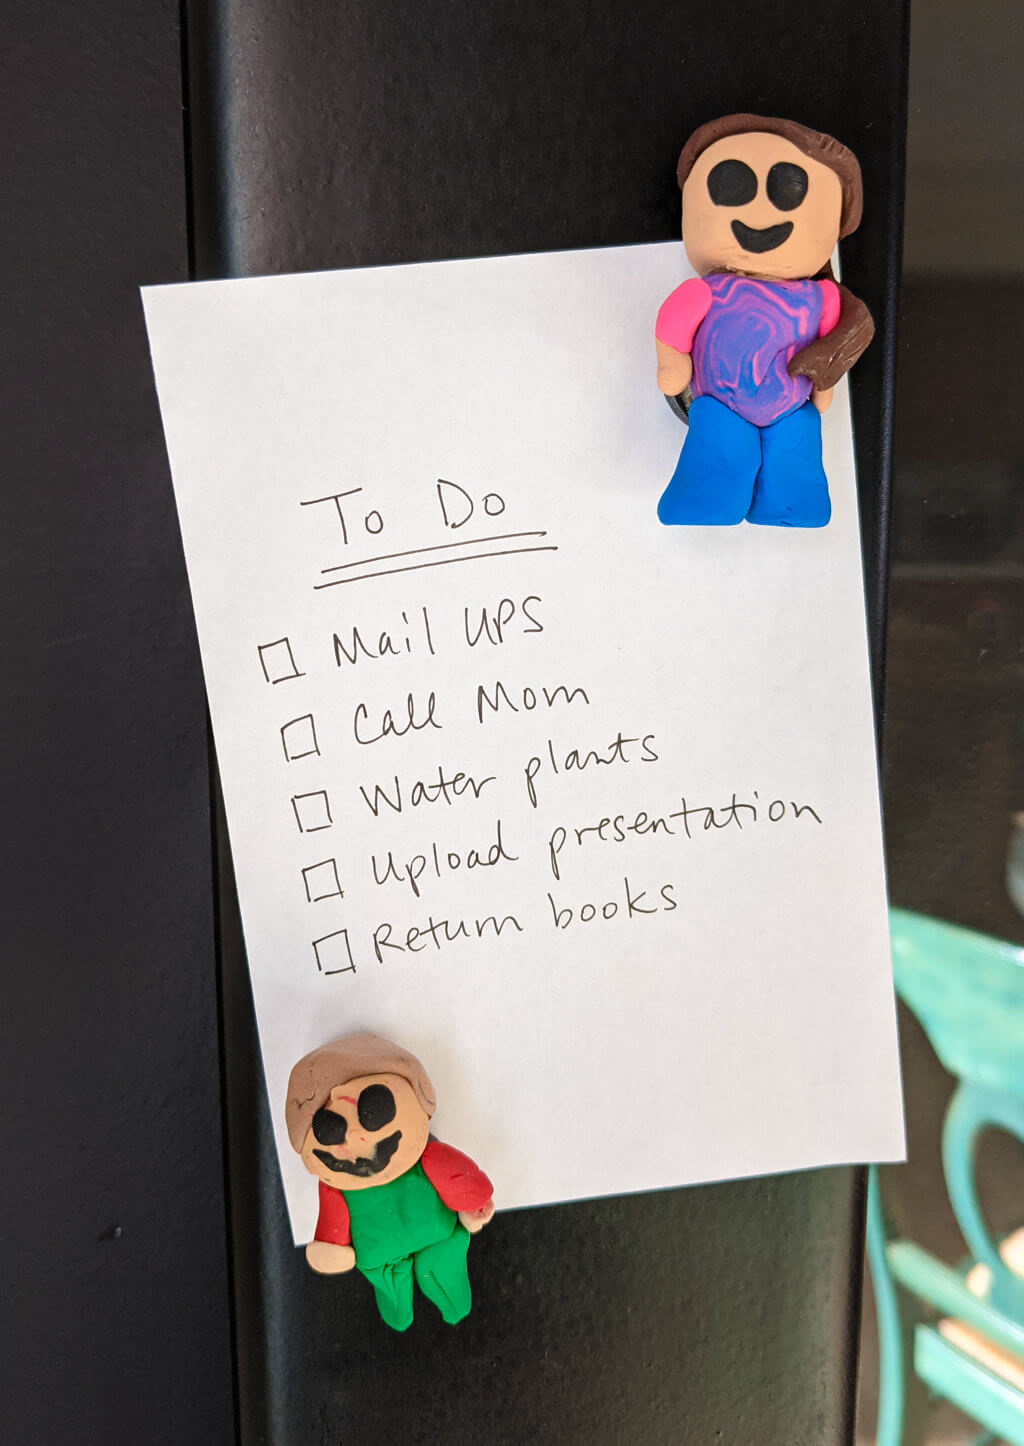 To Do
Mail UPS
Call Mom
Water plants
Upload presentation
Return books